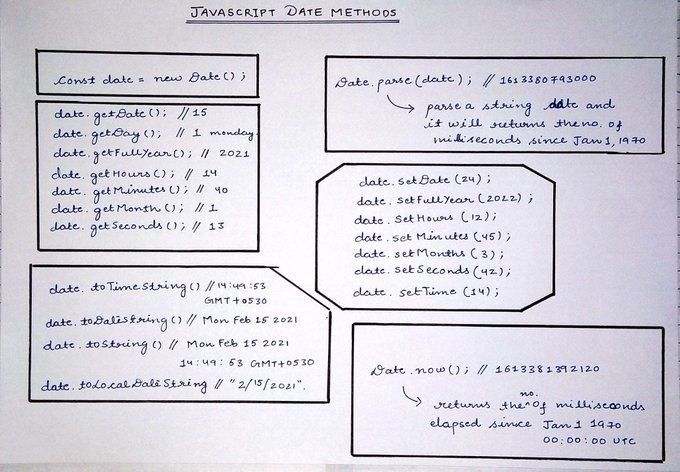 JAVASCRIPT DATE METHODS
const date = new Date();
date.getDate(); // 15
date.getDay(); // 1 monday.
date.getFullYear(); // 2021
date.getHours(); // 14
date.getMinutes(); // 40
date.getMonth(); // 1
date.getSeconds(); // 13
date.toTimeString() // 14:49:53
GMT+0530
date.toDateString() // Mon Feb 15 2021
date.toString() // Mon Feb 15 2021
14:49:53 GMT+0530
date.toLocalDateString // "2/15/2021".
Date.parse(date); // 1613380793000
parse a string date and
it will returns the no. of
milliseconds since Jan 1, 1970
date.setDate(24);
date.setFullYear(2022);
date.setHours(12);
date.setMinutes(45);
date.setMonths(3);
date.setSeconds(42);
date.setTime(14);
Date.now(); // 1613381392120
returns the no. of milliseconds
elapsed since Jan 1 1970
00:00:00 UTC